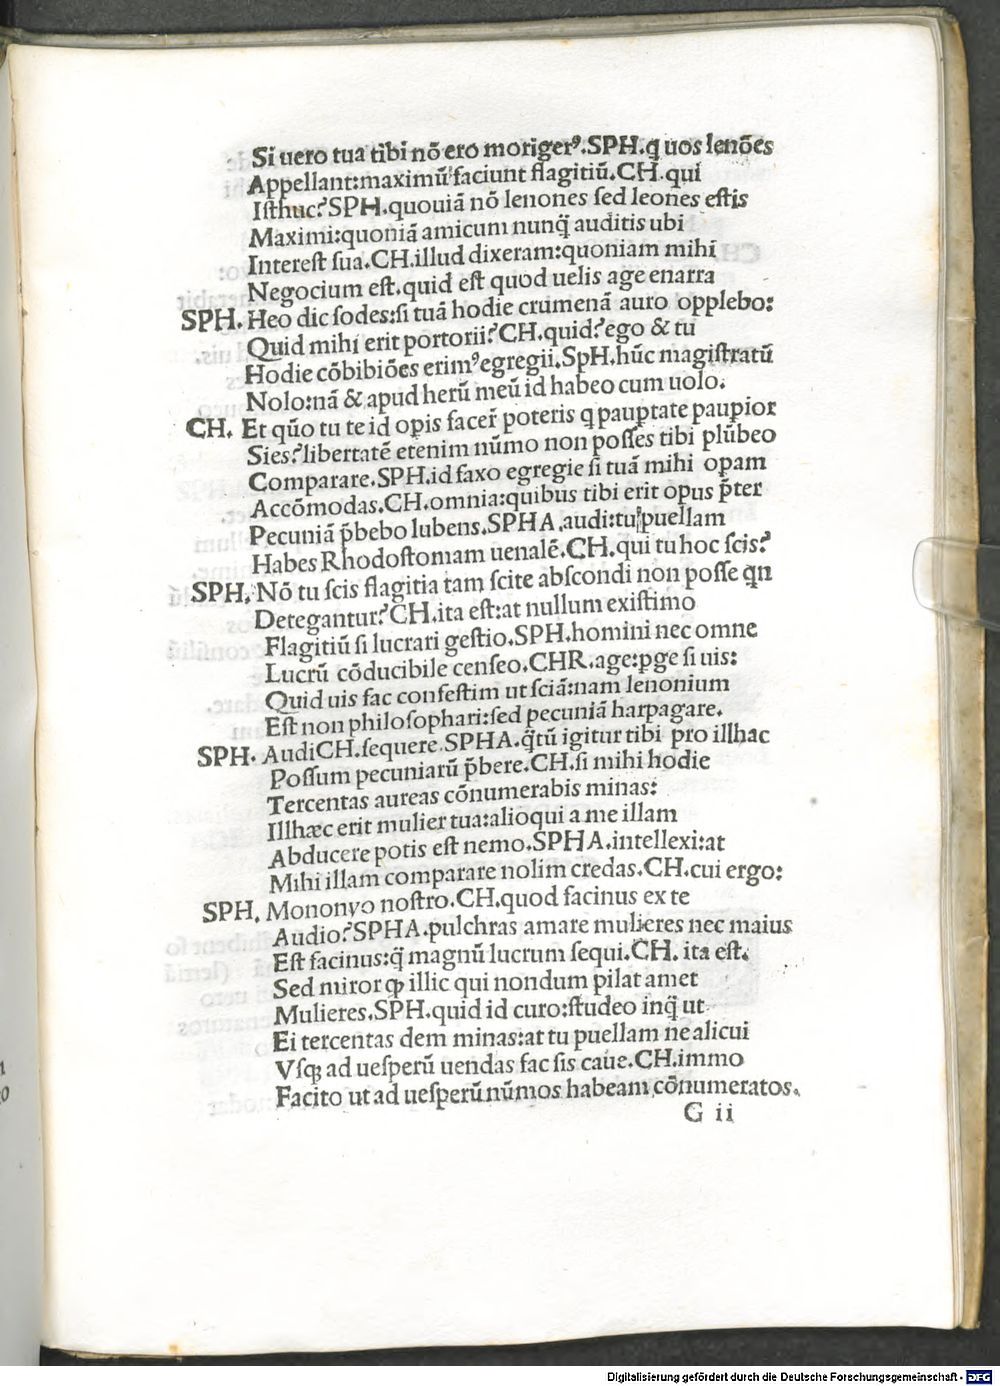 Si uero tua tibi nō ero morigerꝰ.SPH.q uos lenōes
Appellant:maximū faciunt flagitiū.CH.qui
Iſthuc?SPH.quouiā nō lenones ſed leones eſtis
Maximi:quoniā amicum nunq̄ auditis ubi
Intereſt ſua.CH.illud dixeram:quoniam mihi
Negocium eſt.quid eſt quod uelis age enarra
SPH. Heo dic ſodes:ſi tuā hodie crumenā auro opplebo:
Quid mihi erit portorii?CH.quid?ego & tu
Hodie cōbibiōes erimꝰ egregii.SpH.hūc magiſtratū
Nolo:nā & apud herū meū id habeo cum uolo.
CH. Et quō tu te id opis facer̄ poteris q pauꝑtate pauꝑior
Sies?libertatē etenim nūmo non poſſes tibi plūbeo
Comparare.SPH.id faxo egregie ſi tuā mihi opam
Accōmodas.CH.omnia:quibus tibi erit opus p̄ter
Pecuniā p̄bebo lubens.SPHA.audi:tu puellam
Habes Rhodoſtomam uenalē.CH.qui tu hoc ſcis?
SPH. Nō tu ſcis flagitia tam ſcite abſcondi non poſſe qn
Detegantur?CH.ita eſt:at nullum exiſtimo
Flagitiū ſi lucrari geſtio.SPH.homini nec omne
Lucrū cōducibile cenſeo.CHR.age:ꝑge ſi uis:
Quid uis fac confeſtim ut ſciā:nam lenonium
Eſt non philoſophari:ſed pecuniā harpagare.
SPH. AudiCH.ſequere.SPHA.q̄tū igitur tibi pro illhac
Poſſum pecuniarū p̄bere.CH.ſi mihi hodie
Tercentas aureas cōnumerabis minas:
Illhæc erit mulier tua:alioqui a me illam
Abducere potis eſt nemo.SPHA.intellexi:at
Mihi illam comparare nolim credas.CH.cui ergo:
SPH. Mononyo noſtro.CH.quod facinus ex te
Audio?SPHA.pulchras amare mulieres nec maius
Eſt facinus:q̄ magnū lucrum ſequi.CH. ita eſt.
Sed miror ꝙ illic qui nondum pilat amet
Mulieres.SPH.quid id curo:ſtudeo inq̄ ut
Ei tercentas dem minas:at tu puellam ne alicui
Vſqꝫ ad ueſperū uendas fac ſis caue.CH.immo
Facito ut ad ueſperū nūmos habeam cōnumeratos.
G ii
Digitalisierung gefördert durch die Deutsche Forschungsgemeinschaft - DFG